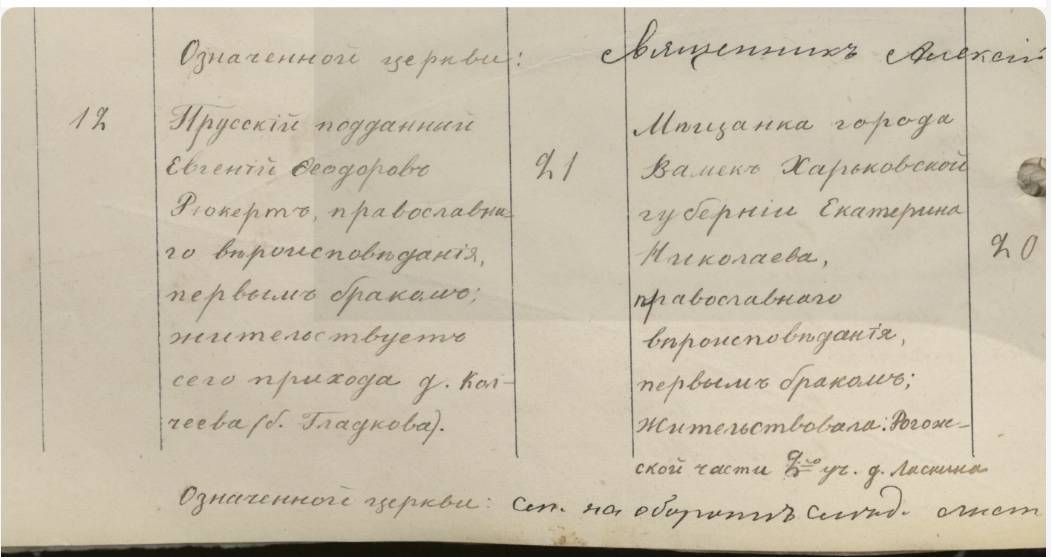 Означенной церкви: Священникъ Алексій
12 Прусскій подданный
Евгеній Ѳеодоровъ
Рюкертъ, православна-
го вѣроисповѣданія,
первымъ бракомъ;
жительствуетъ
сего прихода д. Кол-
чеева (б. Гладкова).
21
Мѣщанка города
Валекъ Харьковской
губерніи Екатерина
Николаева,
православнаго
вѣроисповѣданія,
первымъ бракомъ;
жительствовала: Рогож-
ской части 2го уч. д. Ласкина
20
Означенной церкви: См. на оборотѣ слѣд. лист